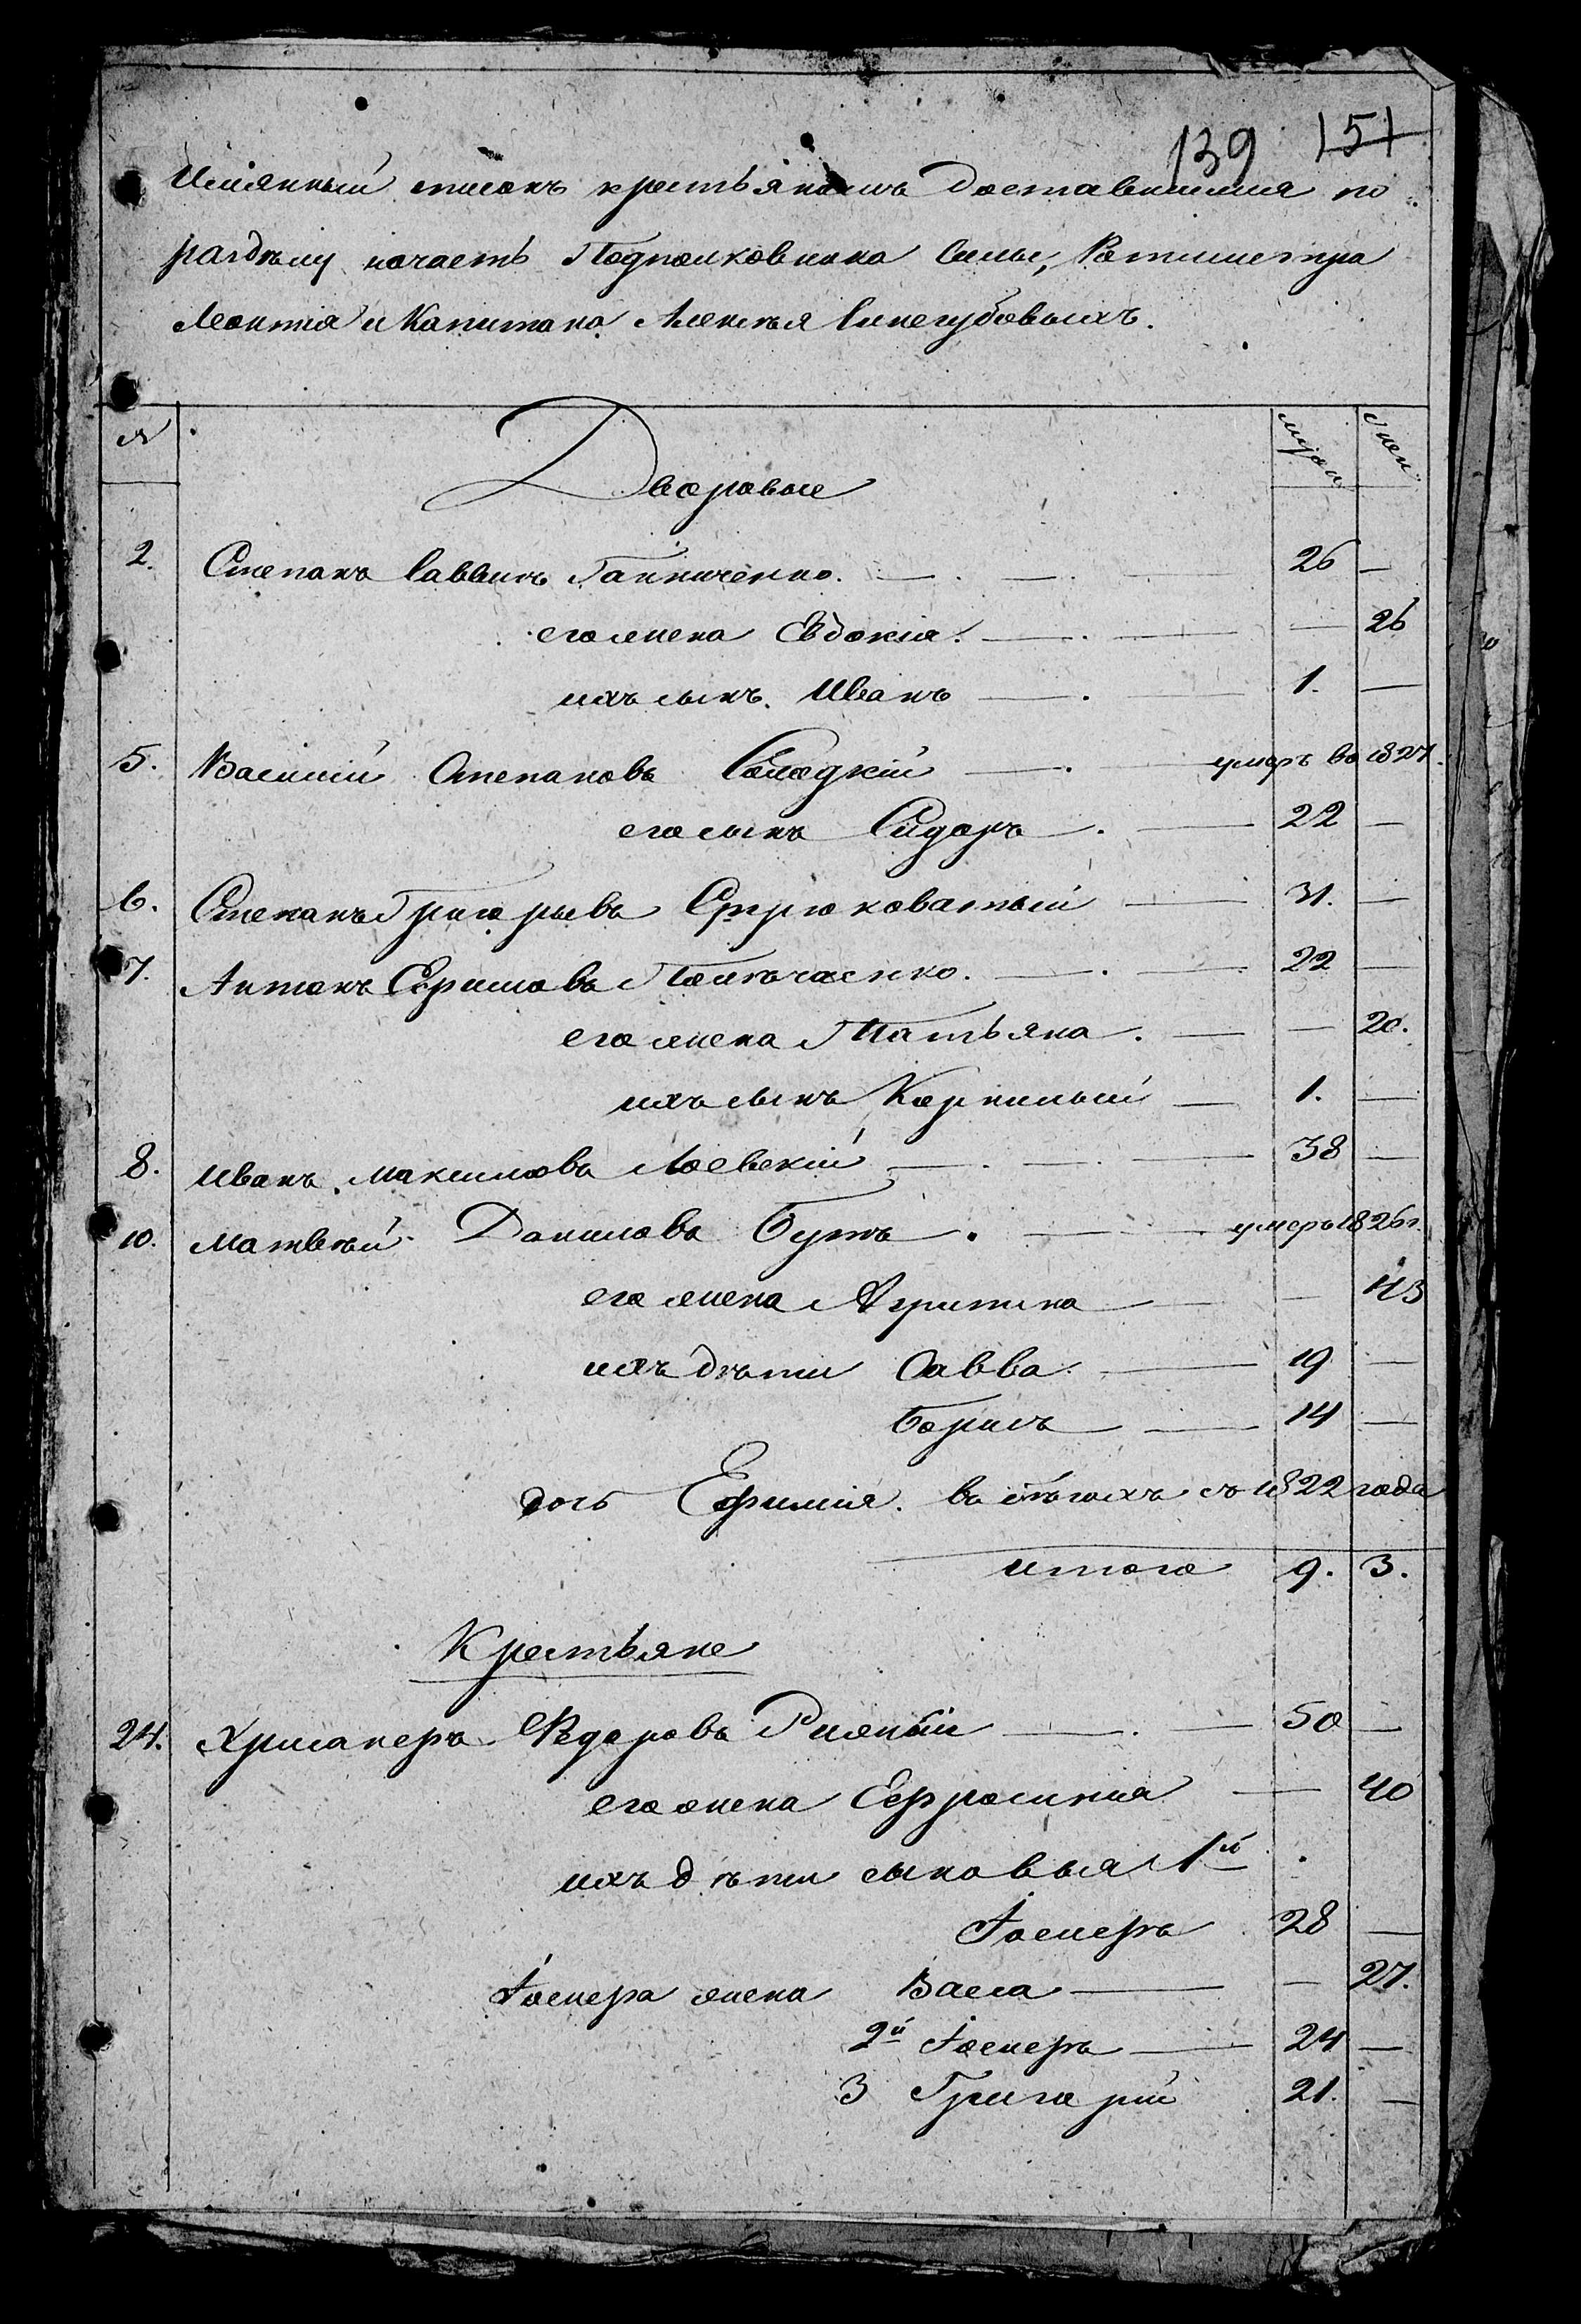 139 151
Имянный списокъ крестьянамъ доставшимся по
раздѣлу начасть Подполковника Силы, Ротмистра
Леонтія и Капитана Алексѣя Синегубовыхъ.
№ муж жен
Дворовые
2. Степанъ Саввинъ — 26 —
его жена Евдокія. — — 26
ихъ сынъ. Иванъ — 1. —
5. Василій Степановъ — умеръ въ 1827.
его сынъ Сидоръ — 22 —
6. Степанъ Григорьевъ — 31. —
7. Антонъ Ефимовъ — 22 —
его жена Татьяна. — — 20.
ихъ сынъ Корнилый — 1. —
8. Иванъ Максимовъ Лоевскій — 38 —
10. Матвѣй Даниловъ Бутъ. — умеръ 1826 г.
его жена — — 43
ихъ дѣти Савва. — 19 —
Борисъ — 14 —
дочь Ефимія. въ бѣгахъ съ 1822 года
итого 9. 3.
Крестьяне
24. Хрисанфъ Ѳедоровъ — 50 —
его жена Ефросинія — 40
ихъ дѣти сыновья 1й
Іосифъ 28 —
Іосифа жена Васа — — 27.
2й Іосифъ — 24 —
3 Григорій 21. —